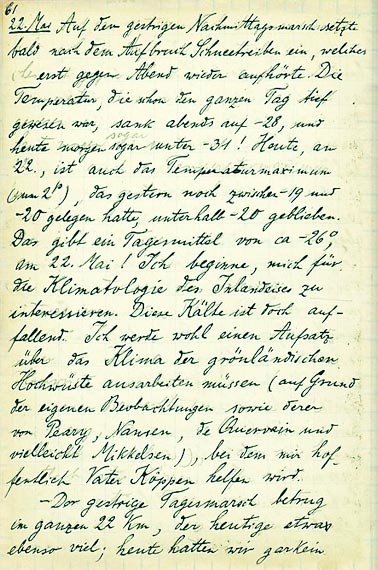 61
22. Mai Auf dem gestrigen Nachmittagsmarsch setzte
bald nach dem Aufbruch Schneetreiben ein, welches
erst gegen Abend wieder aufhörte. Die
Temperatur, die schon den ganzen Tag tief
gewesen war, sank abends auf -28, und
heute morgen sogar unter -31! Heute, am
22., ist auch das Temperaturmaximum
(um 2h), das gestern noch zwischen -19 und
-20 gelegen hatte, unterhalb -20 geblieben.
Das gibt ein Tagesmittel von ca -26°,
am 22. Mai! Ich beginne, mich für
die Klimatologie des Inlandeises zu
interessieren. Diese Kälte ist doch auf-
fallend. Ich werde wohl einen Aufsatz
über das Klima der grönländischen
Hochwüste ausarbeiten müssen (auf Grund
der eigenen Beobachtungen sowie derer
von Peary, Nansen, de Quervain und
vielleicht Mikkelsen), bei dem mir hof-
fentlich Vater Köppen helfen wird.
- Der gestrige Tagesmarsch betrug
im ganzen 22 Km, der heutige etwas
ebenso viel; heute hatten wir gar kein